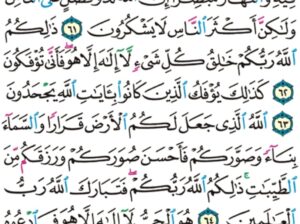 وَلَٰكِنَّ أَكْثَرَ ٱلنَّاسِ لَا يَشْكُرُونَ ٦١ ذَٰلِكُمُ
ٱللَّهُ رَبُّكُمْ خَٰلِقُ كُلِّ شَىْءٍ لَّآ إِلَٰهَ إِلَّا هُوَ ۖ فَأَنَّىٰ تُؤْفَكُونَ
٦٢ كَذَٰلِكَ يُؤْفَكُ ٱلَّذِينَ كَانُوا۟ بِـَٔايَٰتِ ٱللَّهِ يَجْحَدُونَ
٦٣ ٱللَّهُ ٱلَّذِى جَعَلَ لَكُمُ ٱلْأَرْضَ قَرَارًا وَٱلسَّمَآءَ
بِنَآءً وَصَوَّرَكُمْ فَأَحْسَنَ صُوَرَكُمْ وَرَزَقَكُم مِّنَ
ٱلطَّيِّبَٰتِ ۚ ذَٰلِكُمُ ٱللَّهُ رَبُّكُمْ ۖ فَتَبَارَكَ ٱللَّهُ رَبُّ
ٱلْعَٰلَمِينَ ٦٤ هُوَ ٱلْحَىُّ لَآ إِلَٰهَ إِلَّا هُوَ فَٱدْعُوهُ